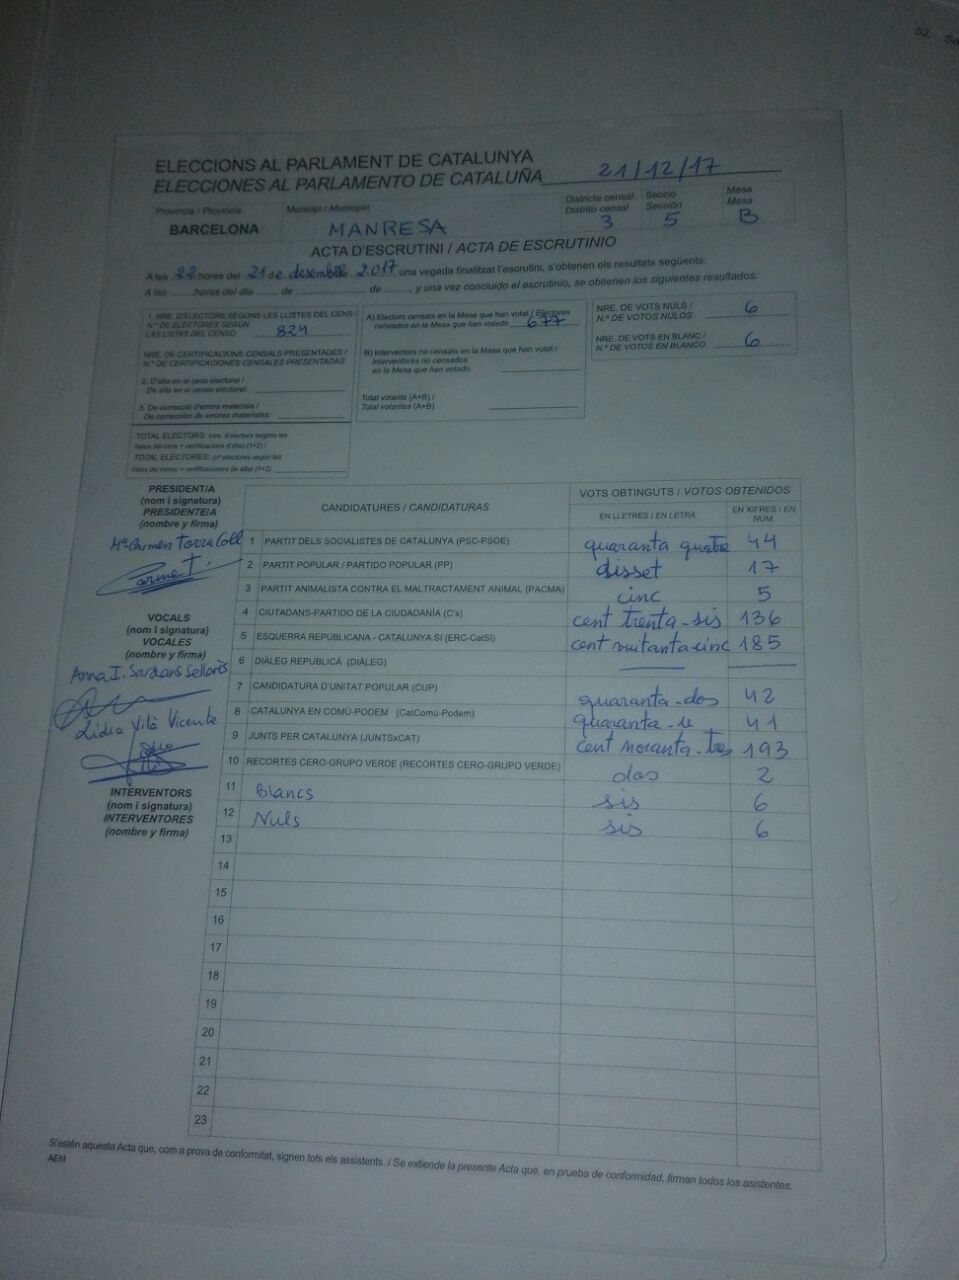 52.
ELECCIONS AL PARLAMENT DE CATALUNYA
ELECCIONES AL PARLAMENTO DE CATALUÑA 21/12/17
Província / Provincia
BARCELONA
Municipi / Municipio
MANRESA
Districte censal
Distrito censal
3
Secció
Sección
5
Mesa
Mesa
B
ACTA D'ESCRUTINI / ACTA DE ESCRUTINIO
A les 22 hores del 21 de desembre 2.017 una vegada finalitzat l'escrutini, s'obtenen els resultats següents:
A las ........ horas del día ....... de ........................ de ........, y una vez concluido el escrutinio, se obtienen los siguientes resultados:
1. NRE. D'ELECTORS SEGONS LES LLISTES DEL CENS /
N.º DE ELECTORES SEGÚN
LAS LISTAS DEL CENSO 824
NRE. DE CERTIFICACIONS CENSALS PRESENTADES /
N.º DE CERTIFICACIONES CENSALES PRESENTADAS
2. D'alta en el cens electoral /
De alta en el censo electoral:
3. De correcció d'errors materials /
De corrección de errores materiales:
TOTAL ELECTORS: (nre. d'electors segons les
llistes del cens + certificacions d'alta) (1+2) /
TOTAL ELECTORES: (nº electores según las
listas del censo + certificaciones de alta) (1+2)
A) Electors censats en la Mesa que han votat / Electores
censados en la Mesa que han votado 677
B) Interventors no censats en la Mesa que han votat /
Interventores no censados
en la Mesa que han votado
Total votants (A+B) /
Total votantes (A+B)
NRE. DE VOTS NULS /
N.º DE VOTOS NULOS 6
NRE. DE VOTS EN BLANC /
N.º DE VOTOS EN BLANCO 6
PRESIDENT/A
(nom i signatura)
PRESIDENTE/A
(nombre y firma)
Mª Carmen Torra Coll
Carme T.
VOCALS
(nom i signatura)
VOCALES
(nombre y firma)
Anna I. Sardans Sellarès
Lidia Vilà Vicente
INTERVENTORS
(nom i signatura)
INTERVENTORES
(nombre y firma)
CANDIDATURES / CANDIDATURAS
VOTS OBTINGUTS / VOTOS OBTENIDOS
EN LLETRES / EN LETRA
EN XIFRES / EN NÚM
1 PARTIT DELS SOCIALISTES DE CATALUNYA (PSC-PSOE) quaranta quatre 44
2 PARTIT POPULAR / PARTIDO POPULAR (PP) disset 17
3 PARTIT ANIMALISTA CONTRA EL MALTRACTAMENT ANIMAL (PACMA) cinc 5
4 CIUTADANS-PARTIDO DE LA CIUDADANÍA (C's) cent trenta-sis 136
5 ESQUERRA REPUBLICANA - CATALUNYA SÍ (ERC-CatSí) cent vuitanta-cinc 185
6 DIÀLEG REPUBLICÀ (DIÀLEG)
7 CANDIDATURA D'UNITAT POPULAR (CUP) quaranta-dos 42
8 CATALUNYA EN COMÚ-PODEM (CatComú-Podem) quaranta-u 41
9 JUNTS PER CATALUNYA (JUNTSxCAT) cent noranta-tres 193
10 RECORTES CERO-GRUPO VERDE (RECORTES CERO-GRUPO VERDE) dos 2
11 Blancs sis 6
12 Nuls sis 6
13
14
15
16
17
18
19
20
21
22
23
S'estén aquesta Acta que, com a prova de conformitat, signen tots els assistents. / Se extiende la presente Acta que, en prueba de conformidad, firman todos los asistentes.
AEM